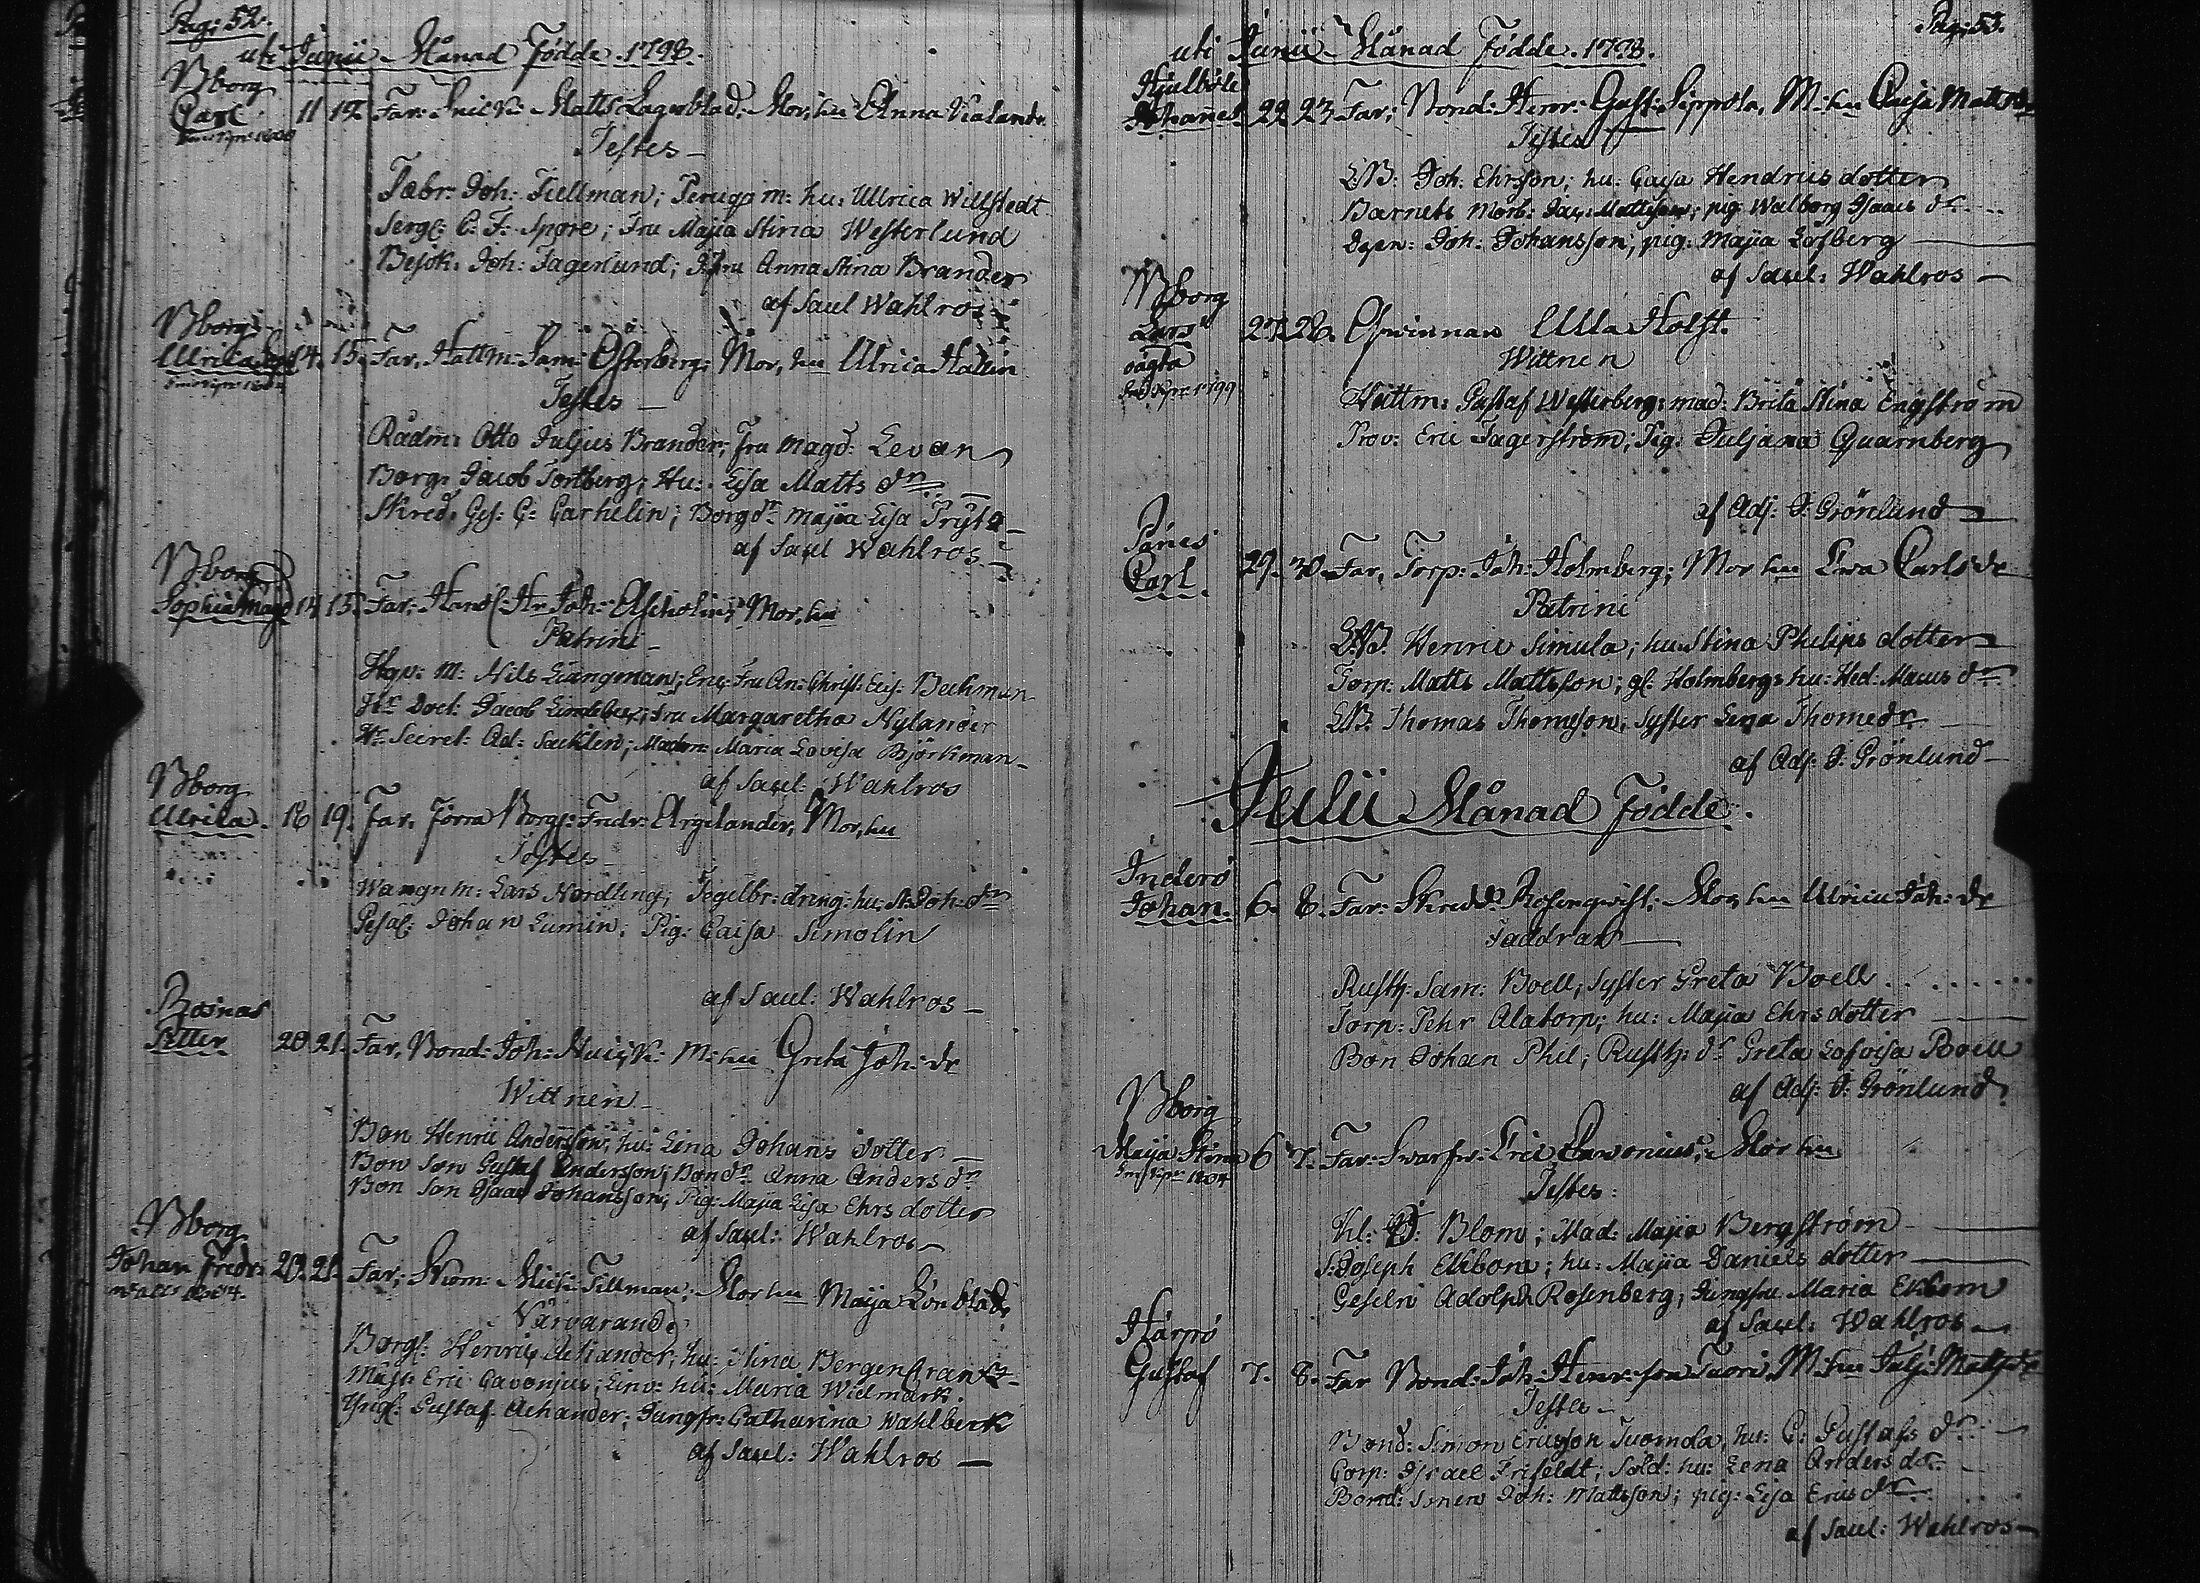 Pag: 52.
uti Junii Månad Födde. 1798.
Bborg
Carl 11 12. Far: Snick: Matts Lagerblad; Mor, hu Anna Kialander
Testes
Fabr: Joh: Tillman; Peruqs m: hu: Ullrica Willstedt
Serg: C: F: Spore; Fru Majia Stina Westerlund
Besök: Joh: Fagerlund; Jfru Anna Stina Brander
af Sacel Wahlros
Bborg
Ulrica 14. 15. Far, Hattm: Sam: Österberg; Mor, hu Ulrica Hallin
Testes
Rådm: Otto Juljus Brander; fru Magd: Levan
Borg: Jacob Tortberg; Hu: Lisa Matts dr
Skred. Ges: C: Carhelin; Borg dr Majia Lisa Pryts
af Sacel Wahlros
Bborg
Sophia Magd 14 15. Far: Handl: Hr Joh: Ascholin; Mor, hu
Patrini
m: Nils Liangman; Fru An: Christ: Beckman
Hr Doct: Jacob Lindebek; fru Margaretha Nylander
Hr Secret: Ad: Sacklen; Madm: Maria Lovisa Björkman
af Sacel: Wahlros
Bborg
Ulrika. 18 19. Far, Förra Borg: Fredr: Argelander, Mor, hu
Testes
Wangn m: Lars Nordling; Tegelbr: dreng: hu: St: Joh: dr
Gesäl: Johan Lumin; Pig: Caisa Simolin
af Sacel: Wahlros
Bosnas
Petter 20 21. Far, Bond: Joh: M: hu Greta Joh: dr
Wittnen
Bon Henric Andersson; hu: Lina Johans dotter
Bon Son Gustaf Andersson; Bon dr Anna Anders dr
Bon Son Isaac Johansson; Pig: Majia Lisa Ehrs dotter
af Sacel: Wahlros
Bborg
Johan Fredr: 20. 21. Far; Skom: Mich: Tillman; Mor hu Maija Lönblad
Närvarande
Borg: Henric Achander; hu: Stina Bergenstranz
Mäst: Eric Cavonjus; hu: Maria Widmark.
Yngl: Gustaf Achander; Jungfr: Catharina Wahlberk
af Sacel: Wahlros
Pag: 53.
uti Junii Månad Födde. 1798.
Hjulböle
Johannes 22. 23. Far; Bond: Henr: Gust: Sippola, M: hu Caisa Matts dr
Testes
LB: Joh: Ehrsson; hu: Caisa Hendrics dotter
Barnets Morb: Jac: Mattsson; pig: Walborg Isaacs dr
Joh: Johansson; pig: Majia Löfberg
af Sacel: Wahlros
Bborg
Lars 27. 28. Qwinnan Ulla Holst.
oägta
Wittnen
Hattm: Gustaf Westerberg; mad: Brita Stina Engström
Prov: Eric Fagerström; Pig: Juljana Quarnberg
af Adj: J: Grönlund
Pånes
Carl. 29. 30. Far, Torp: Joh: Holmberg; Mor hu Ewa Carls dr
Patrini
LB. Henric Simula; hu: Stina Philips dotter
Torp: Matts Mattsson; gl: Holmbergs hu: Hed: Macus dr
LB. Thomas Thomsson; Syster Lena Thomedr
af Adj: J: Grönlund
Julii Månad Födde.
Inderö
Johan. 6. 8. Far: Skredd: Rosenqvist; Mor hu Ulrica Joh: dr
Faddrar
Rusth: Sam: Boell; Syster Greta Boell
Torp: Pehr Alatorp; hu: Majia Ehrs dotter
Bon Johan Phil; Rusth: dr Greta Lofvisa Boell
af Adj: J: Grönlund
Bborg
Maija Stina 6 7. Far: Swarfw: Eric Cawonius; Mor hu
Testes:
Kl: Blom; Mad: Majia Bergström
S: Joseph Ekbom; hu: Majia Daniels dotter
Geseln Adolph Rosenberg; Jungfru Maria Ekbom
af Sacel: Wahlros
Härpö
Gustaf 7. 8. Far Bond: Joh: Henr: son Tuori, M: hu Julj: Matts dr
Testes
Bond: Simon Ericsson Tuomola, hu: C: Gustafs dr
Corp: Israel Frifeldt; Sold: hu: Lena Anders dr
Bond: Sonen Joh: Mattsson; pig: Lisa Erics dr
af Sacel: Wahlros